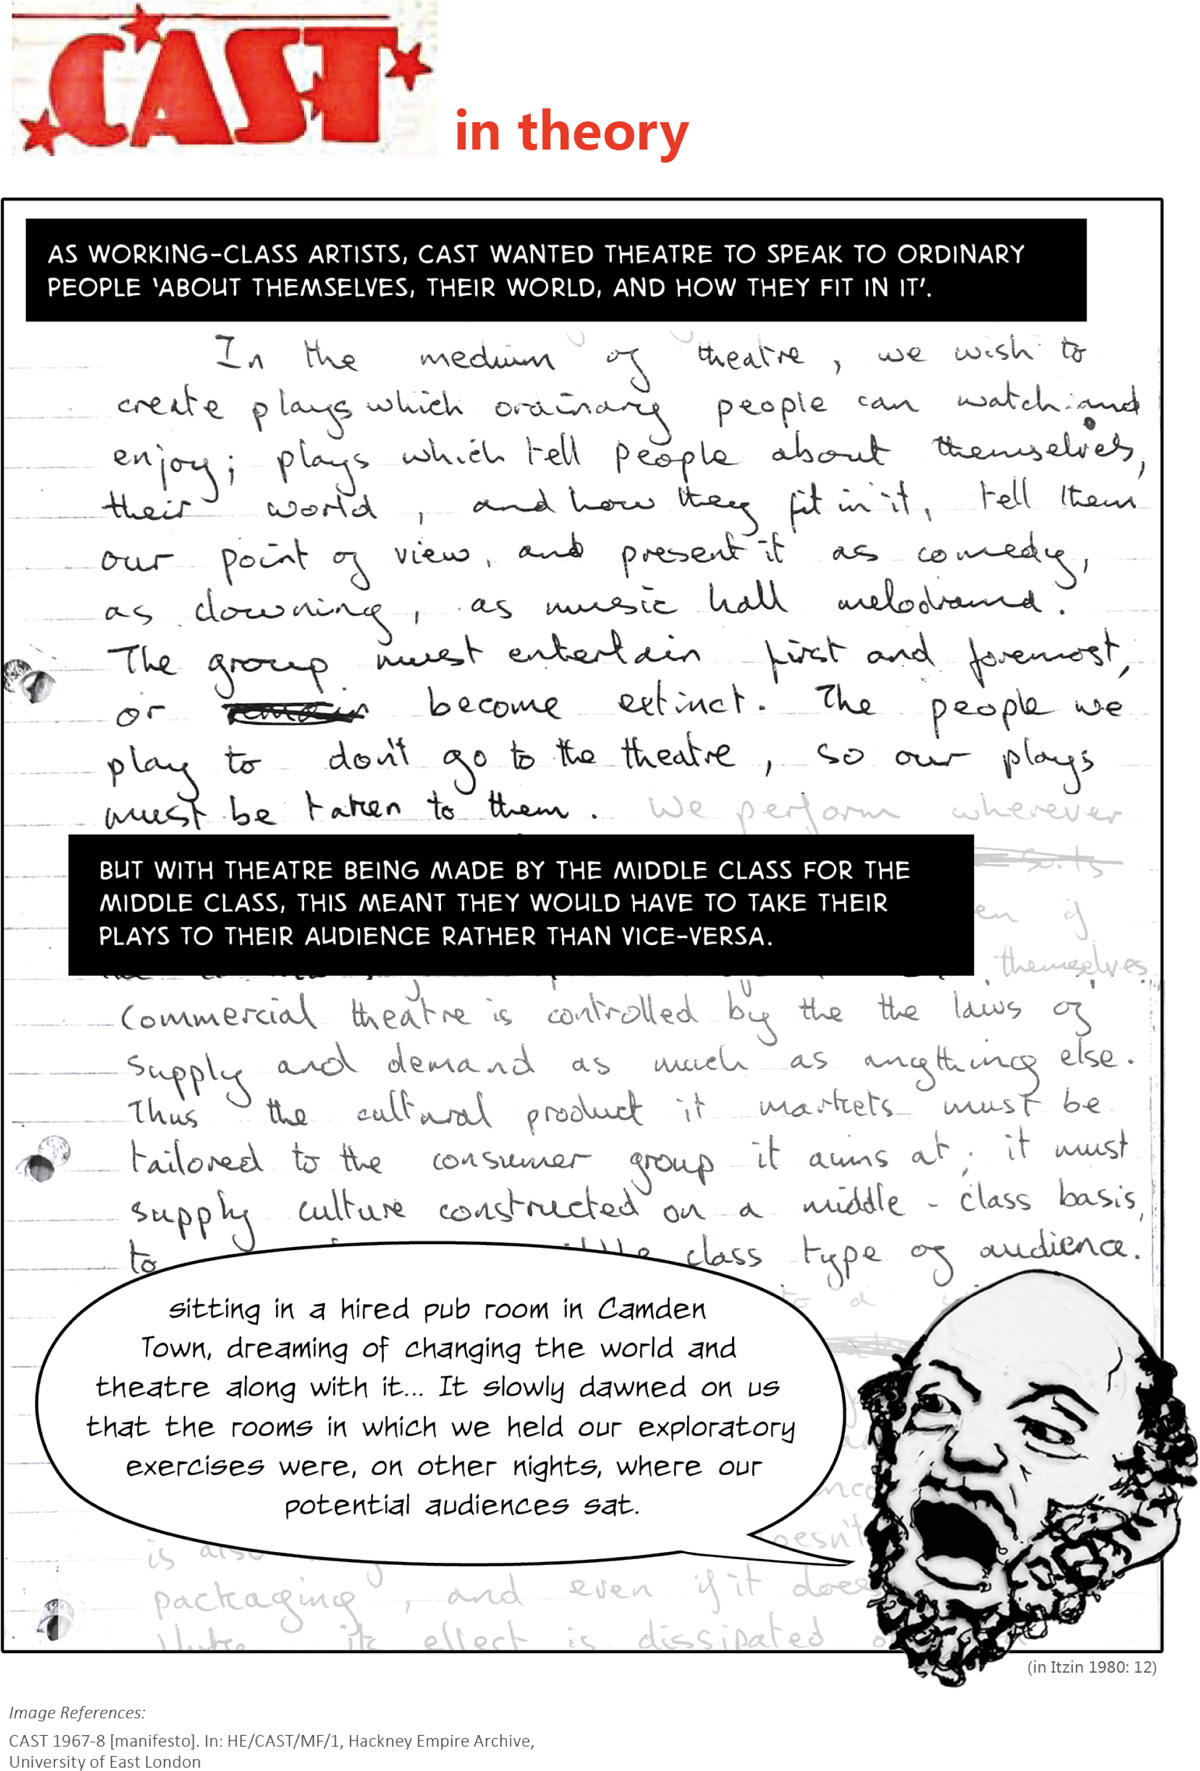 CAST
in theory
AS WORKING-CLASS ARTISTS, CAST WANTED THEATRE TO SPEAK TO ORDINARY
PEOPLE 'ABOUT THEMSELVES, THEIR WORLD, AND HOW THEY FIT IN IT'.
In the medium of theatre, we wish to
create plays which ordinary people can watch and
enjoy; plays which tell people about themselves,
their world, and how they fit in it, tell them
our point of view, and present it as comedy,
as clowning, as music hall melodrama.
The group must entertain first and foremost,
or remain become extinct. The people we
play to don't go to the theatre, so our plays
must be taken to them. We perform wherever
BUT WITH THEATRE BEING MADE BY THE MIDDLE CLASS FOR THE
MIDDLE CLASS, THIS MEANT THEY WOULD HAVE TO TAKE THEIR
PLAYS TO THEIR AUDIENCE RATHER THAN VICE-VERSA.
themselves.
Commercial theatre is controlled by the the laws of
supply and demand as much as anything else.
Thus the cultural product it markets must be
tailored to the consumer group it aims at; it must
supply culture constructed on a middle-class basis,
to class type of audience.
to a
sitting in a hired pub room in Camden
Town, dreaming of changing the world and
theatre along with it... It slowly dawned on us
that the rooms in which we held our exploratory
exercises were, on other nights, where our
potential audiences sat.
is also
packaging, and even if it does
its effect is dissipated
(in Itzin 1980: 12)
Image References:
CAST 1967-8 [manifesto]. In: HE/CAST/MF/1, Hackney Empire Archive,
University of East London